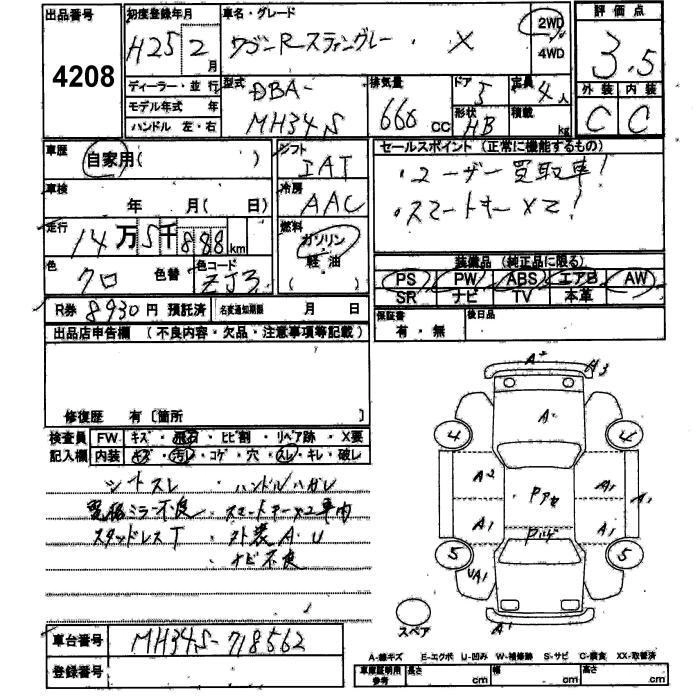 出品番号
4208
初度登録年月
H25 2月
車名・グレード
ワゴンRスティングレー・X
2WD
4WD
評価点
3.5
外装 内装
C C
ディーラー・並行
モデル年式 年
ハンドル 左・右
型式
DBA-
MH34S
排気量
660cc
ドア
5
形状
HB
定員
4人
積載
kg
車歴
自家用( )
シフト
IAT
車検
年 月( 日)
冷房
AAC
走行
14万5千888km
燃料
ガソリン
軽・油
( )
色
クロ
色替
色コード
ZJ3
R券 8930円 預託済
名変通知期限 月 日
セールスポイント(正常に機能するもの)
・ユーザー買取車!
・スマートキー×2!
装備品(純正品に限る)
PS PW ABS エアB AW
SR ナビ TV 本革
保証書
有・無
後日品
出品店申告欄(不良内容・欠品・注意事項等記載)
修復歴 有〔箇所 〕
検査員
記入欄
FW キズ・飛石・ヒビ割・リペア跡・X要
内装 キズ・汚レ・コゲ・穴・スレ・キレ・破レ
シートスレ ・ハンドルハガレ
電格ミラー不良 ・スマートキー×2車内
スタッドレスT ・外装A・U
・ナビ不良
車台番号 MH34S-718562
登録番号
A2
A3
A
4
4
A2
A1
A1
A1
A1
5
5
UA1
A1
スペア
A-線キズ E-エクボ U-凹み W-補修跡 S-サビ C-腐食 XX-取替済
車庫証明用
参考
長さ cm
幅 cm
高さ cm